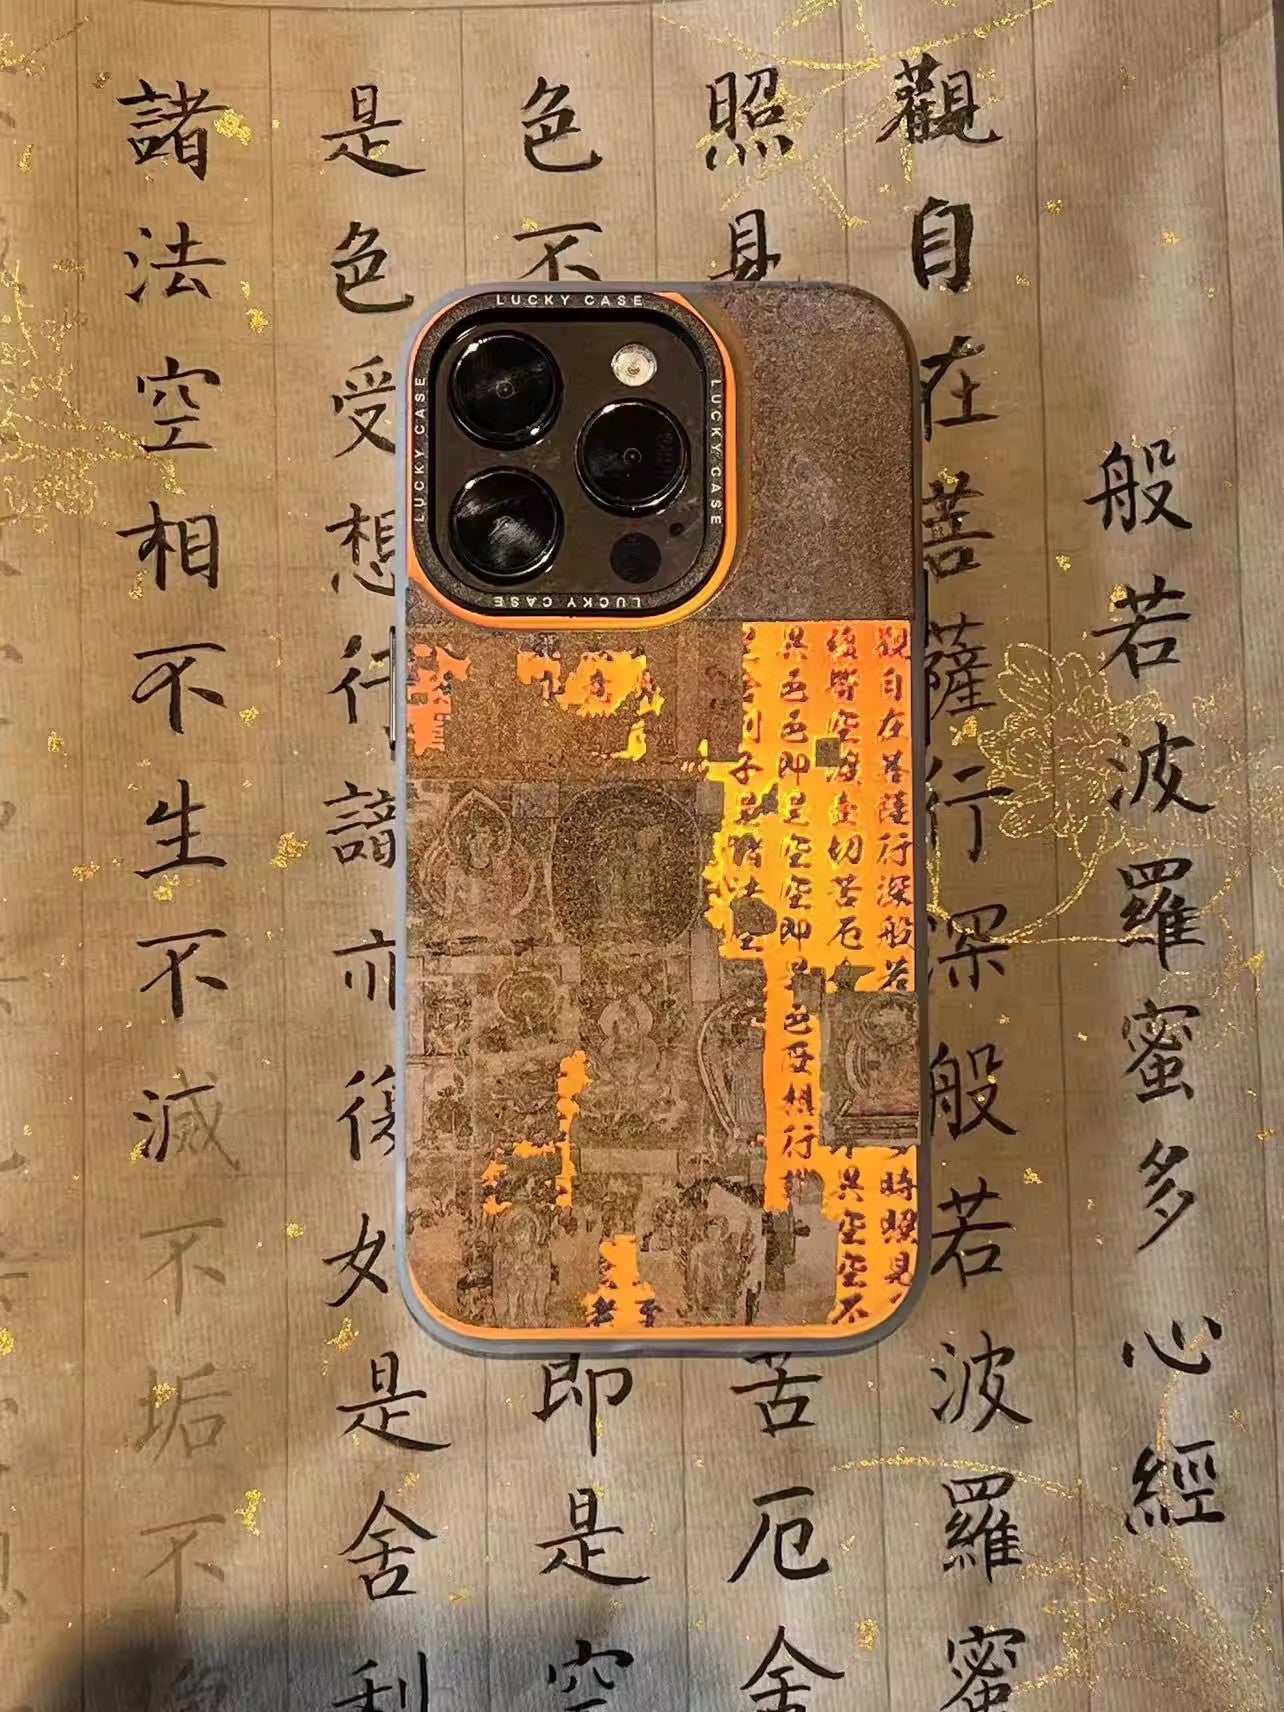 般若波羅蜜多心經
觀自在菩薩行深般若波羅蜜
照見
苦厄舍
色不
即是空
是色受想行識亦復如是舍利
諸法空相不生不滅不垢不
LUCKY CASE
LUCKY CASE
LUCKY CASE
LUCKY CASE
觀自在菩薩行深般若
時照見
蘊皆空度一切苦厄
異空空不
異色色即是空空即是色受想行識
利子是諸法空